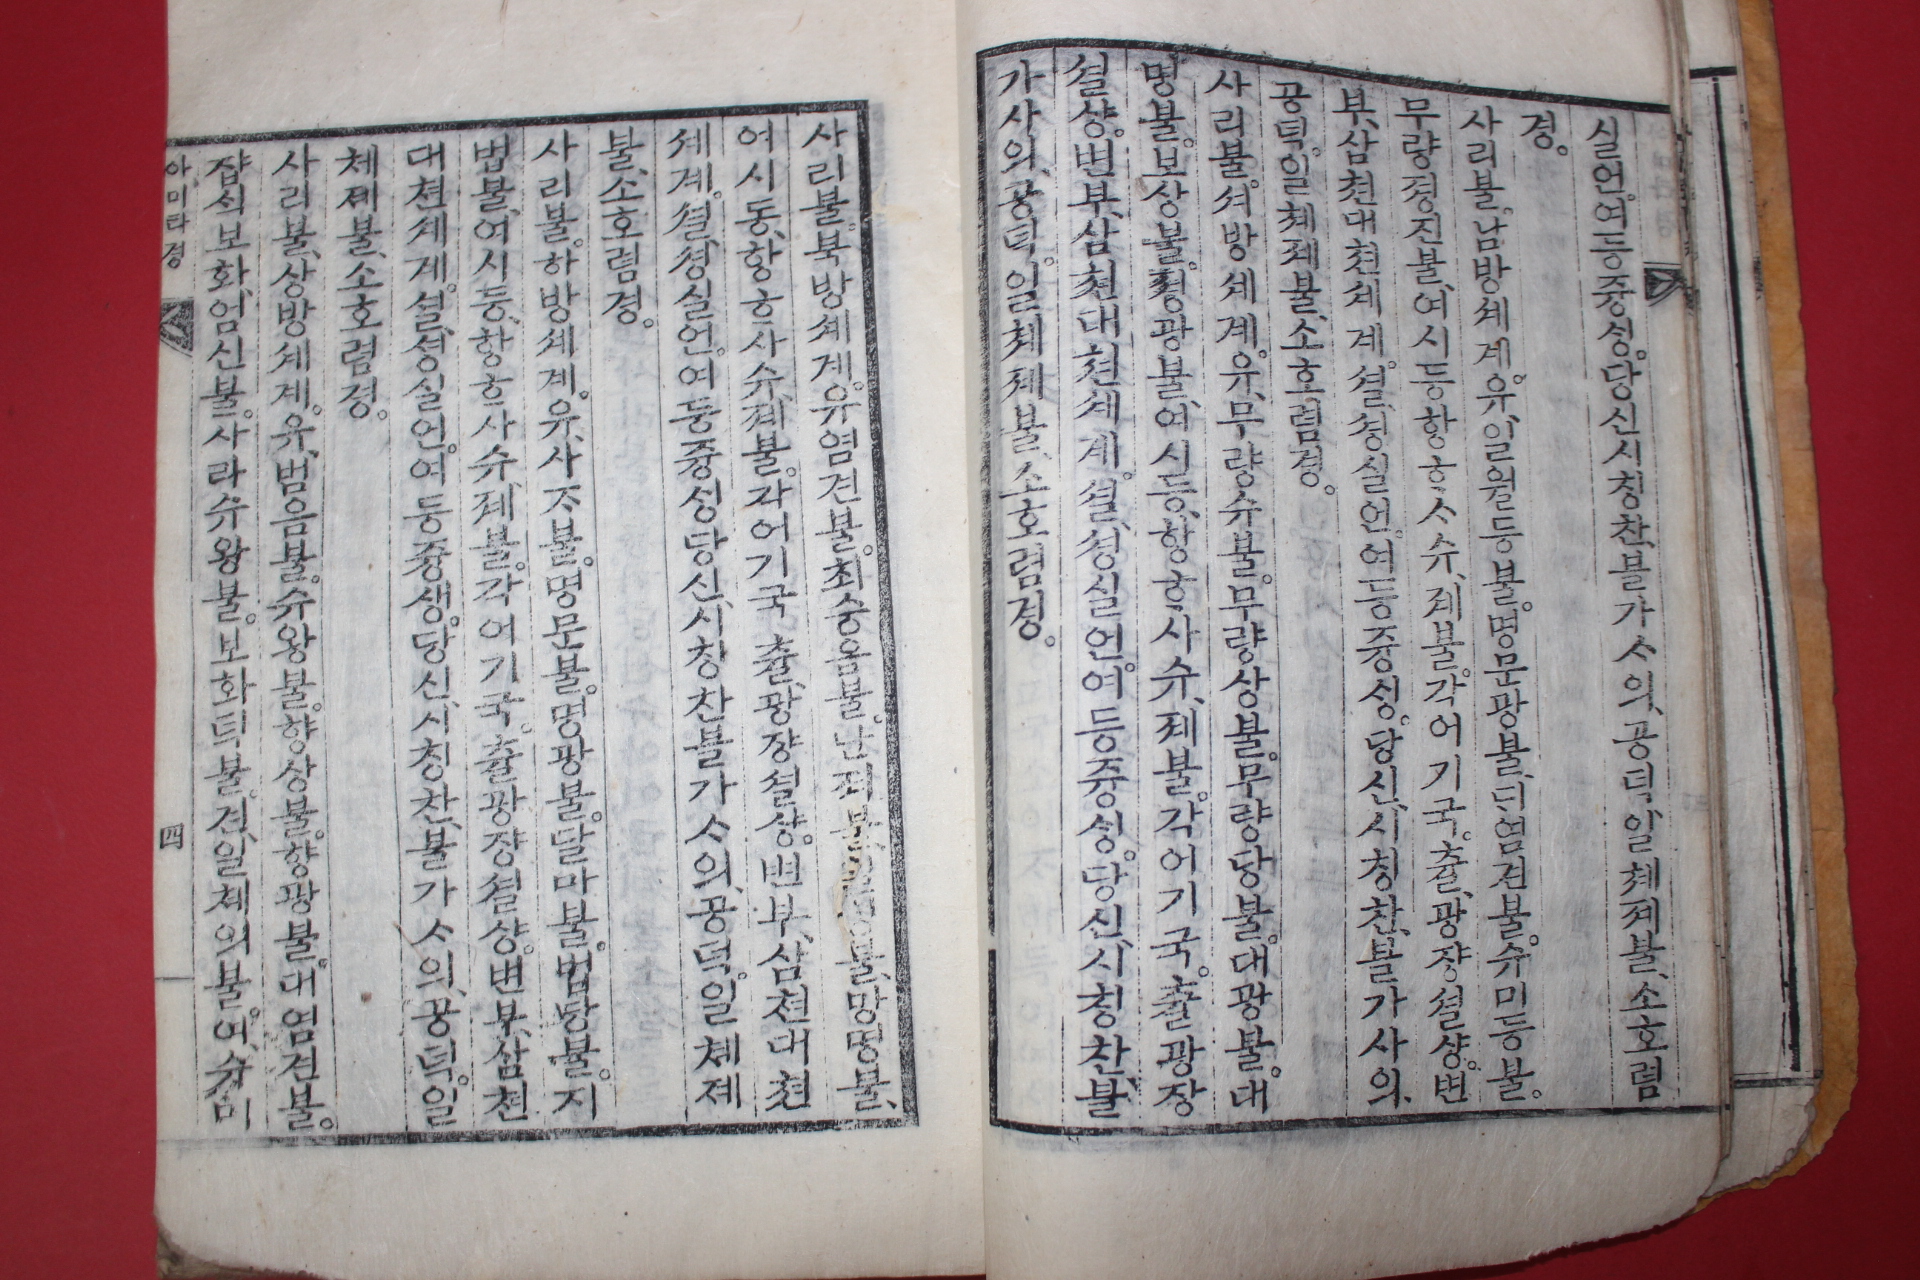 실언。여등즁싱。당신시칭찬、불가ᄉ의、공덕、일쳬졔불、소호렴
경。
사리불。남방셰계。유、일월등불。명문광불、ᄃᆡ염견불。슈미등불。
무량졍진불、여시등항ᄒᆞᄉ슈、졔불。각어기국。츌、광쟝셜샹。변
부、삼쳔대쳔셰계。셜、셩실언。여등즁싱。당신、시칭찬、불가사의、
공덕。일쳬졔불、소호렴경。
사리불。셔방셰계。유、무량슈불。무량상불。무량당불。대광불。대
명불。보상불。졍광불、여시등、항ᄒᆞ사슈、졔불。각어기국。츌광장
셜샹。변부、삼쳔대쳔셰계。셜、셩실언。여등즁싱。당신、시칭찬、불
가사의、공덕。일쳬졔불、소호렴경。
사리불。북방셰계。유염견불。최승음불、난져불、일불、망명불、
여시등、항ᄒᆞ사슈、졔불。각어기국、츌、광쟝셜샹。변부、삼쳔대쳔
셰계。셜、셩실언。여등즁싱당신、시칭찬불가ᄉ의、공덕。일쳬졔
불、소호렴경。
사리불。하방셰계。유、사ᄌᆞ불。명문불。명광불。달마불。법당불。지
법불、여시등、항ᄒᆞ사슈、졔불。각어기국。츌광쟝셜샹。변부、삼쳔
대쳔셰계。셜、셩실언。여등즁생。당신、시칭찬、불가ᄉ의、공덕。일
쳬졔불、소호렴경。
사리불、상방셰계。유、범음불。슈왕불。향상불。향광불。대염견불。
쟙식보화、엄신불。사라슈왕불。보화덕불。견、일쳬의불。여、슈미
아미타경
四